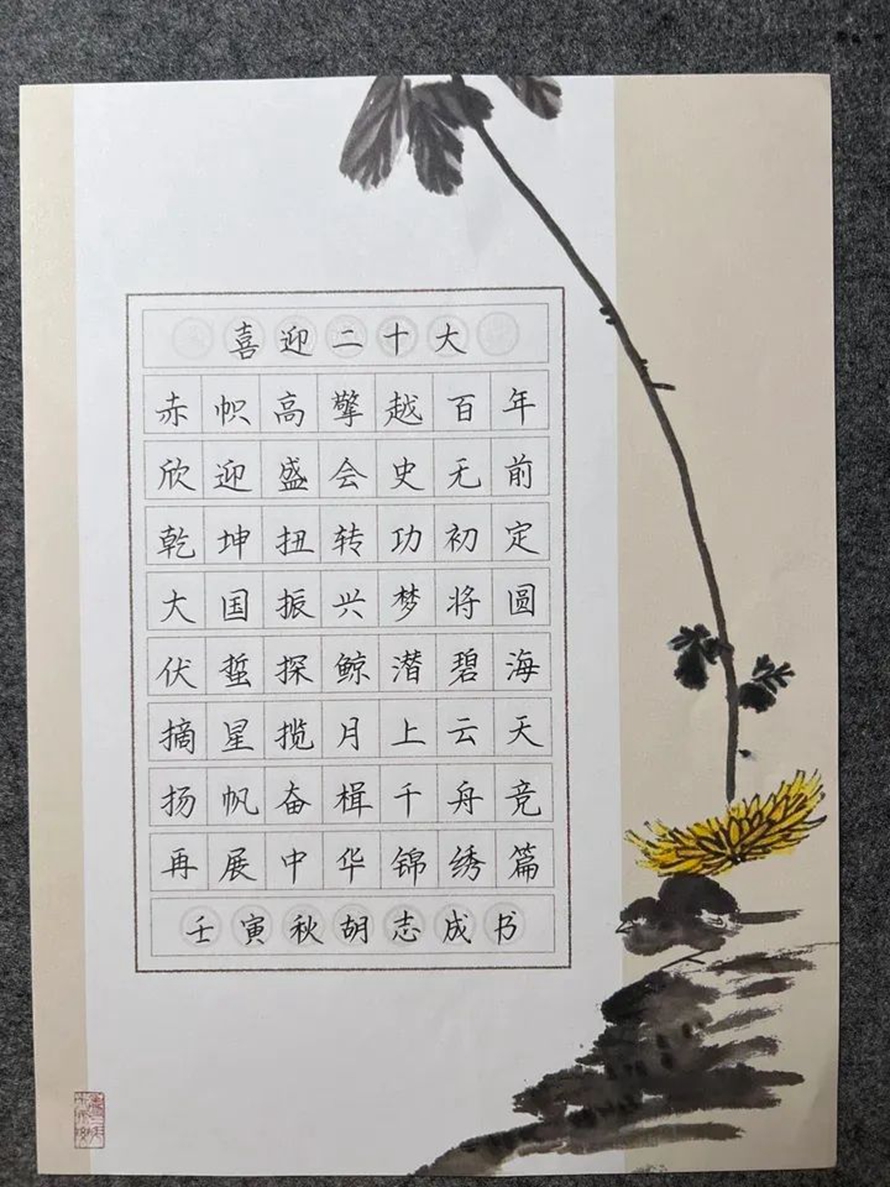 喜迎二十大
赤帜高擎越百年
欣迎盛会史无前
乾坤扭转功初定
大国振兴梦将圆
伏蜇探鲸潜碧海
摘星揽月上云天
扬帆奋楫千舟竞
再展中华锦绣篇
壬寅秋胡志成书